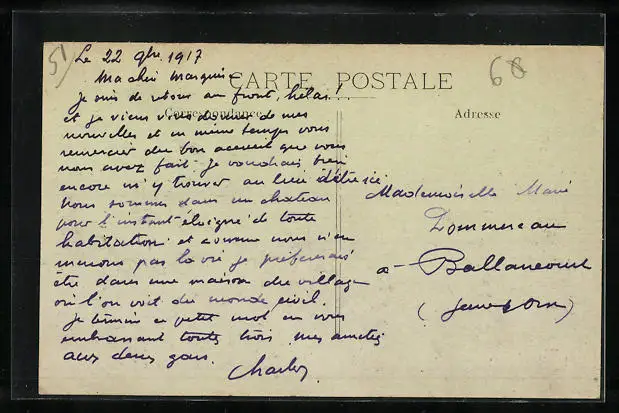 51
68
Le 22 9bre 1917
Ma chère Marquise
CARTE POSTALE
Je suis de retour au front, hélas!!
Correspondance
Adresse
et je viens vous donner de mes
nouvelles et en même temps vous
remercier du bon accueil que vous
nous avez fait. Je voudrais bien
encore m'y trouver au lieu d'être ici
Nous sommes dans un chateau
pour l'instant éloigné de toute
habitation et comme nous n'en
menons pas la vie je préfèrerais
être dans une maison du village
où l'on voit du monde civil.
Je termine ce petit mot en vous
embrassant toutes trois mes amitiés
aux deux gars.
Charles
Mademoiselle Marie
Dommereau
a Ballancourt
(Seine & Oise)